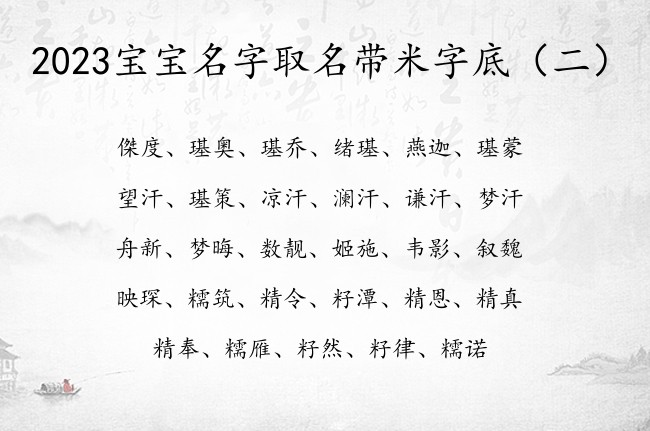 2023宝宝名字取名带米字底（二）
傑度、琎奥、琎乔、绪琎、燕迦、琎蒙
望汗、琎策、凉汗、澜汗、谦汗、梦汗
舟新、梦晦、数靓、姬施、韦影、叙魏
映琛、糯筑、精令、籽潭、精恩、精真
精奉、糯雁、籽然、籽律、糯诺